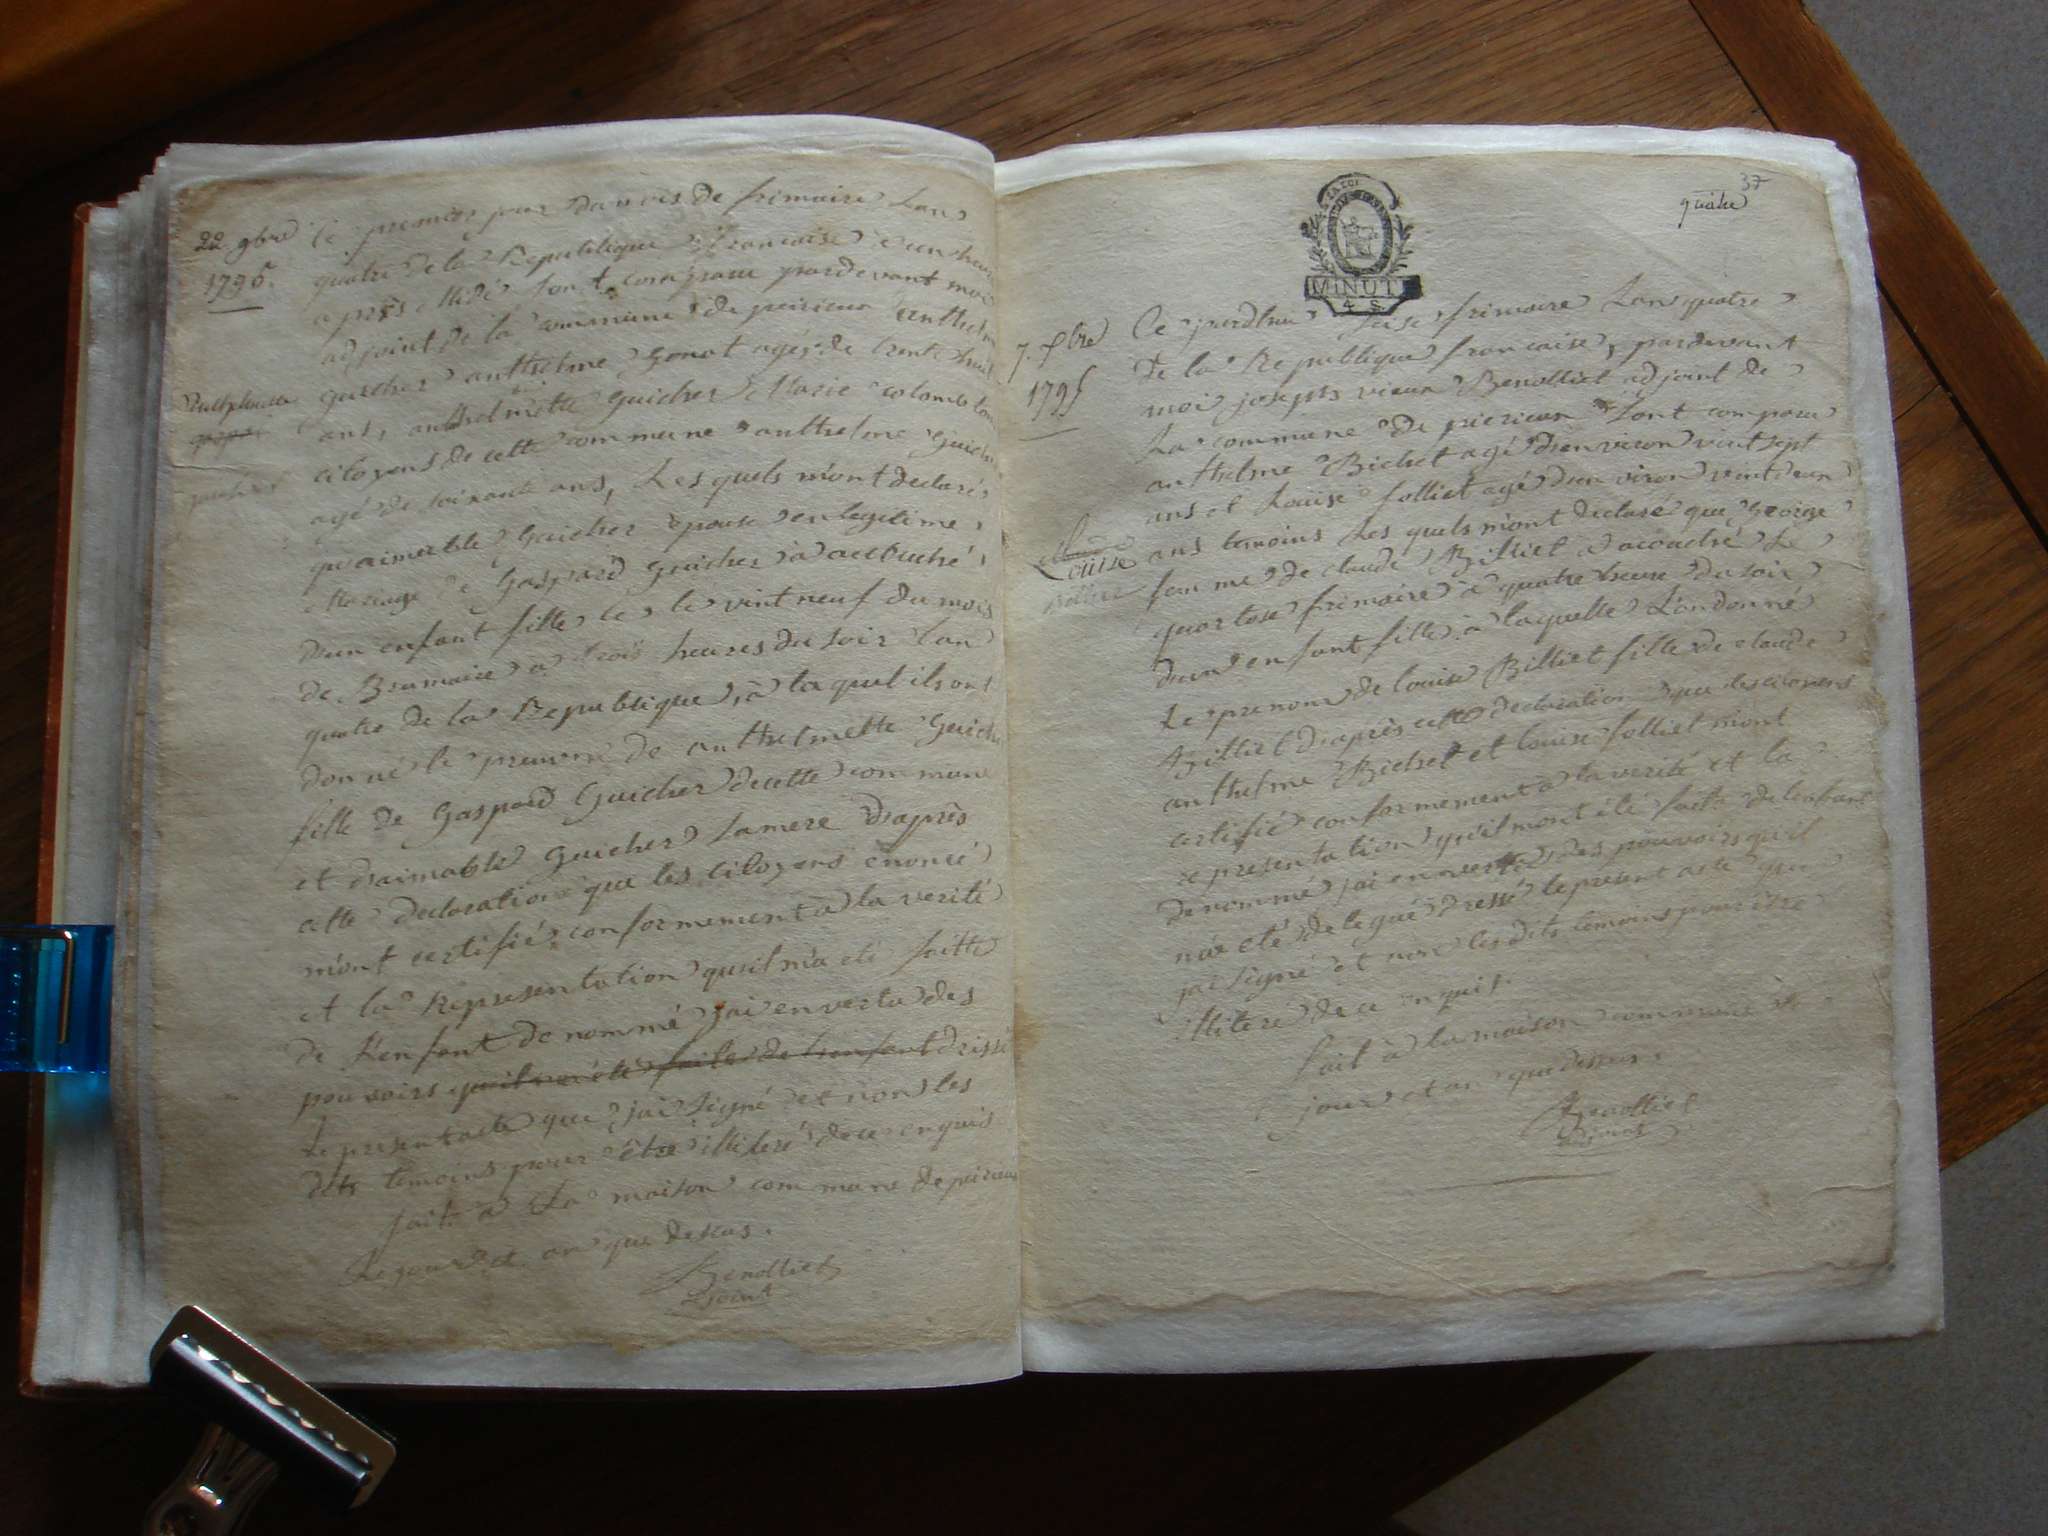 22 9bre
1795.
Le premier jour du mois de frimaire Lan
quatre de la Republique francaise a un heure
aprés Midi sont comparu pardevant moi
adjoint de la commune de peirieux anthelme
guicher anthelme gonat agés de trente huit
ans, anthelmette guicher Marie colomb tous
citoyens de cette commune anthelme guicher
agé de soixante ans, Les quels m'ont declarés
qu'aimable guicher epouse en legitime
Mariage de Gaspard guicher à accouché
d'un enfant fille le le vint neuf du mois
de Brumaire a trois heures du soir lan
quatre de la Republique, à la quel ils ont
donné le prenom de anthelmette guicher
fille de Gaspard guicher de cette commune
et d'aimable guicher La mere d'après
cette declaration que les citoyens enoncé
m'ont certifié conformement a la verité
et la Representation qu'il m'a eté faitte
de L'enfant denommé jai en vertu des
pouvoirs qu'il m'a été faite de l'enfant dressé
Le present acte que jai signé et non les
dits temoins pour être illiteré de ce enquis
fait a La maison commune de peirieux
Le jour et an que dessus.
Benolliet
adjoint
37
quatre
LA LOI
MINUTE
4 S
7. xbre
1795
Louise
Billiet
Ce jourdhui seise frimaire Lan quatre
De la Republique francaise, pardevant
moi joseph vieux Benolliet adjoint de
La commune de peirieux sont comparu
anthelme Bichet agé d'environ vint sept
ans et Louise folliet agé d'environ vint deux
ans temoins Les quels m'ont declaré que
famme de claude Billiet a acouché Le
quartose frimaire à quatre heure du soir
d'un enfant fille à laquelle L'on donné
Le prenom de louise Billiet fille de claude
Billiet d'après cette declaration que les citoyens
anthelme Bichet et louise folliet mont
certifié conformement à la verité et la
representation qu'il mont été faite de lenfant
denommé jai en vertu des pouvoirs qu'il
m'a eté delegué dressé le present acte que
jai signé et non les dits temoins pour être
illiteré de ce enquis.
fait à la maison commune Les
jour et an que dessus.
Benolliet
adjoint